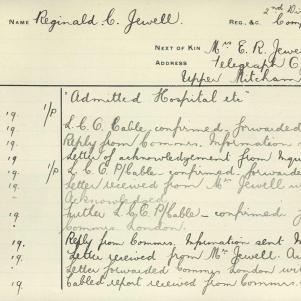 2nd Di
NAME Reginald C. Jewell. REG. &C. Com
NEXT OF KIN Mrs E. R. Jewe
ADDRESS Telegraph C
Upper Mitcham
1/P "Admitted Hospital etc"
19. L.C.C. Cable confirmed, forwarded
19. Reply from Commrs. Information s
19. Letter of acknowledgement from Inqui
19. 1/P L.C.C. P/Cable - confirmed, forwarde
19. Letter received from Mrs Jewell
Acknowledged
19. Further L.C.C P/Cable - confirmed
Commrs London.
19. Reply from Commrs. Information sent
19. Letter received from Mr Jewell. A
19. Letter forwarded Commrs London
19. Cabled report received from Commrs.